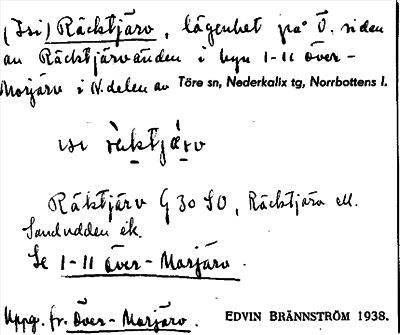 (Isi) Räcktjärv, lägenhet på Ö. sidan
av Räcktjärvänden i byn 1-11 Över-
Morjärv i N. delen av Töre sn, Nederkalix tg, Norrbottens l.
isi räktjärv
Räktjärv G 30 SO, Räcktjärv ell.
Sandudden ek.
Se 1-11 Över-Morjärv.
Uppg. fr. Över-Morjärv. EDVIN BRÄNNSTRÖM 1938.